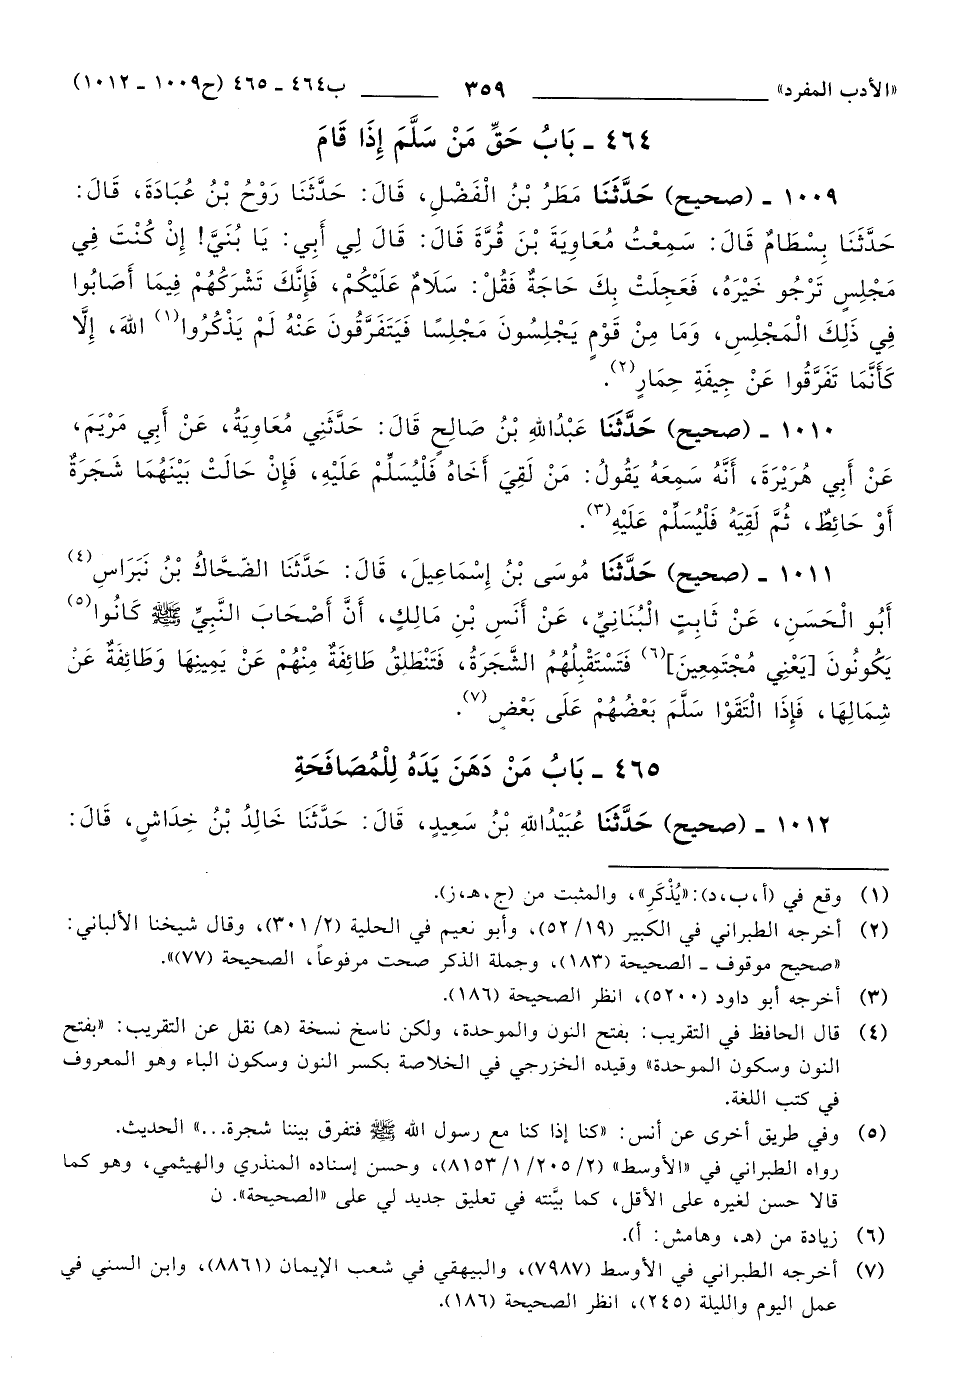 «الأدب المفرد» ٣٥٩ ب٤٦٤ ـ ٤٦٥ (ح١٠٠٩ ـ ١٠١٢)
٤٦٤ ـ بَابُ حَقِّ مَنْ سَلَّمَ إِذَا قَامَ
١٠٠٩ ـ (صحيح) حَدَّثَنَا مَطَرُ بْنُ الْفَضْلِ، قَالَ: حَدَّثَنَا رَوْحُ بْنُ عُبَادَةَ، قَالَ:
حَدَّثَنَا بِسْطَامٌ قَالَ: سَمِعْتُ مُعَاوِيَةَ بْنَ قُرَّةَ قَالَ: قَالَ لِي أَبِي: يَا بُنَيَّ! إِنْ كُنْتَ فِي
مَجْلِسٍ تَرْجُو خَيْرَهُ، فَعَجِلَتْ بِكَ حَاجَةٌ فَقُلْ: سَلَامٌ عَلَيْكُمْ، فَإِنَّكَ تَشْرَكُهُمْ فِيمَا أَصَابُوا
فِي ذَلِكَ الْمَجْلِسِ، وَمَا مِنْ قَوْمٍ يَجْلِسُونَ مَجْلِسًا فَيَتَفَرَّقُونَ عَنْهُ لَمْ يَذْكُرُوا(١) اللهَ، إِلَّا
كَأَنَّمَا تَفَرَّقُوا عَنْ جِيفَةِ حِمَارٍ(٢).
١٠١٠ ـ (صحيح) حَدَّثَنَا عَبْدُاللهِ بْنُ صَالِحٍ قَالَ: حَدَّثَنِي مُعَاوِيَةُ، عَنْ أَبِي مَرْيَمَ،
عَنْ أَبِي هُرَيْرَةَ، أَنَّهُ سَمِعَهُ يَقُولُ: مَنْ لَقِيَ أَخَاهُ فَلْيُسَلِّمْ عَلَيْهِ، فَإِنْ حَالَتْ بَيْنَهُمَا شَجَرَةٌ
أَوْ حَائِطٌ، ثُمَّ لَقِيَهُ فَلْيُسَلِّمْ عَلَيْهِ(٣).
١٠١١ ـ (صحيح) حَدَّثَنَا مُوسَى بْنُ إِسْمَاعِيلَ، قَالَ: حَدَّثَنَا الضَّحَّاكُ بْنُ نَبَرَاسٍ(٤)
أَبُو الْحَسَنِ، عَنْ ثَابِتٍ الْبُنَانِيِّ، عَنْ أَنَسِ بْنِ مَالِكٍ، أَنَّ أَصْحَابَ النَّبِيِّ ﷺ كَانُوا(٥)
يَكُونُونَ [يَعْنِي مُجْتَمِعِينَ](٦) فَتَسْتَقْبِلُهُمُ الشَّجَرَةُ، فَتَنْطَلِقُ طَائِفَةٌ مِنْهُمْ عَنْ يَمِينِهَا وَطَائِفَةٌ عَنْ
شِمَالِهَا، فَإِذَا الْتَقَوْا سَلَّمَ بَعْضُهُمْ عَلَى بَعْضٍ(٧).
٤٦٥ ـ بَابُ مَنْ دَهَنَ يَدَهُ لِلْمُصَافَحَةِ
١٠١٢ ـ (صحيح) حَدَّثَنَا عُبَيْدُاللهِ بْنُ سَعِيدٍ، قَالَ: حَدَّثَنَا خَالِدُ بْنُ خِدَاشٍ، قَالَ:
(١) وقع في (أ، ب، د): «يُذْكَرِ»، والمثبت من (ج، هـ، ز).
(٢) أخرجه الطبراني في الكبير (١٩/ ٥٢)، وأبو نعيم في الحلية (٢/ ٣٠١)، وقال شيخنا الألباني:
«صحيح موقوف ـ الصحيحة (١٨٣)، وجملة الذكر صحت مرفوعاً، الصحيحة (٧٧)».
(٣) أخرجه أبو داود (٥٢٠٠)، انظر الصحيحة (١٨٦).
(٤) قال الحافظ في التقريب: بفتح النون والموحدة، ولكن ناسخ نسخة (هـ) نقل عن التقريب: «بفتح
النون وسكون الموحدة» وقيده الخزرجي في الخلاصة بكسر النون وسكون الباء وهو المعروف
في كتب اللغة.
(٥) وفي طريق أخرى عن أنس: «كنا إذا كنا مع رسول الله ﷺ فتفرق بيننا شجرة...» الحديث.
رواه الطبراني في «الأوسط» (٢/ ٢٠٥/ ١/ ٨١٥٣)، وحسن إسناده المنذري والهيثمي، وهو كما
قالا حسن لغيره على الأقل، كما بيَّنته في تعليق جديد لي على «الصحيحة». ن
(٦) زيادة من (هـ، وهامش: أ).
(٧) أخرجه الطبراني في الأوسط (٧٩٨٧)، والبيهقي في شعب الإيمان (٨٨٦١)، وابن السني في
عمل اليوم والليلة (٢٤٥)، انظر الصحيحة (١٨٦).